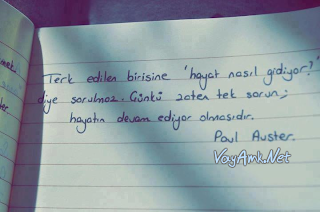 Terk edilen birisine 'hayat nasıl gidiyor?'
diye sorulmaz. Günkü zaten tek sorun;
hayatın devam ediyor olmasıdır.
Paul Auster.
VayAmk.Net